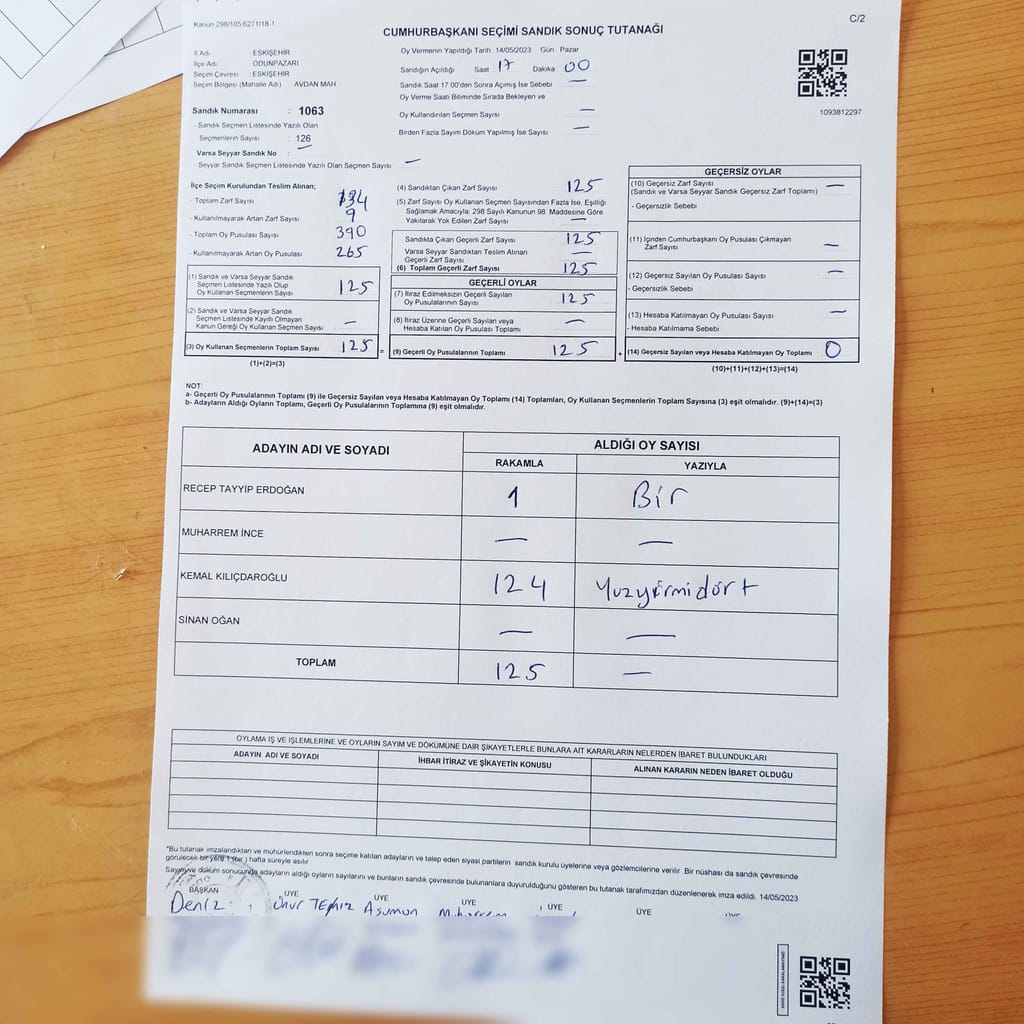 Kanun 298/105.6271/18-1
C/2
CUMHURBAŞKANI SEÇİMİ SANDIK SONUÇ TUTANAĞI
İl Adı ESKİŞEHİR
İlçe Adı ODUNPAZARI
Seçim Çevresi : ESKİŞEHİR
Seçim Bölgesi (Mahalle Adı) AVDAN MAH
Sandık Numarası : 1063
- Sandık Seçmen Listesinde Yazılı Olan
Seçmenlerin Sayısı : 126
Varsa Seyyar Sandık No : —
- Seyyar Sandık Seçmen Listesinde Yazılı Olan Seçmen Sayısı —
Oy Vermenin Yapıldığı Tarih 14/05/2023 Gün : Pazar
Sandığın Açıldığı Saat 17 Dakika 00
Sandık Saat 17:00'den Sonra Açılmış İse Sebebi —
Oy Verme Saati Bitiminde Sırada Bekleyen ve
Oy Kullandırılan Seçmen Sayısı —
Birden Fazla Sayım Döküm Yapılmış İse Sayısı —
1093812297
İlçe Seçim Kurulundan Teslim Alınan;
- Toplam Zarf Sayısı 134
- Kullanılmayarak Artan Zarf Sayısı 9
- Toplam Oy Pusulası Sayısı 390
- Kullanılmayarak Artan Oy Pusulası 265
(1) Sandık ve Varsa Seyyar Sandık
Seçmen Listesinde Yazılı Olup
Oy Kullanan Seçmenlerin Sayısı 125
(2) Sandık ve Varsa Seyyar Sandık
Seçmen Listesinde Kayıtlı Olmayan
Kanun Gereği Oy Kullanan Seçmen Sayısı —
(3) Oy Kullanan Seçmenlerin Toplam Sayısı 125 =
(1)+(2)=(3)
(4) Sandıktan Çıkan Zarf Sayısı 125
(5) Zarf Sayısı Oy Kullanan Seçmen Sayısından Fazla İse, Eşitliği
Sağlamak Amacıyla; 298 Sayılı Kanunun 98. Maddesine Göre
Yakılarak Yok Edilen Zarf Sayısı —
Sandıkta Çıkan Geçerli Zarf Sayısı 125
Varsa Seyyar Sandıktan Teslim Alınan
Geçerli Zarf Sayısı —
(6) Toplam Geçerli Zarf Sayısı 125
GEÇERLİ OYLAR
(7) İtiraz Edilmeksizin Geçerli Sayılan
Oy Pusulalarının Sayısı 125
(8) İtiraz Üzerine Geçerli Sayılan veya
Hesaba Katılan Oy Pusulası Toplamı —
(9) Geçerli Oy Pusulalarının Toplamı 125 +
GEÇERSİZ OYLAR
(10) Geçersiz Zarf Sayısı —
(Sandık ve Varsa Seyyar Sandık Geçersiz Zarf Toplamı)
- Geçersizlik Sebebi
(11) İçinden Cumhurbaşkanı Oy Pusulası Çıkmayan
Zarf Sayısı —
(12) Geçersiz Sayılan Oy Pusulası Sayısı —
- Geçersizlik Sebebi
(13) Hesaba Katılmayan Oy Pusulası Sayısı —
- Hesaba Katılmama Sebebi
(14) Geçersiz Sayılan veya Hesaba Katılmayan Oy Toplamı 0
(10)+(11)+(12)+(13)=(14)
NOT:
a- Geçerli Oy Pusulalarının Toplamı (9) ile Geçersiz Sayılan veya Hesaba Katılmayan Oy Toplamı (14) Toplamları, Oy Kullanan Seçmenlerin Toplam Sayısına (3) eşit olmalıdır. (9)+(14)=(3)
b- Adayların Aldığı Oyların Toplamı, Geçerli Oy Pusulalarının Toplamına (9) eşit olmalıdır.
ADAYIN ADI VE SOYADI ALDIĞI OY SAYISI
RAKAMLA YAZIYLA
RECEP TAYYİP ERDOĞAN 1 Bir
MUHARREM İNCE — —
KEMAL KILIÇDAROĞLU 124 Yuzyirmidört
SİNAN OĞAN — —
TOPLAM 125 —
OYLAMA İŞ VE İŞLEMLERİNE VE OYLARIN SAYIM VE DÖKÜMÜNE DAİR ŞİKAYETLERLE BUNLARA AİT KARARLARIN NELERDEN İBARET BULUNDUKLARI
ADAYIN ADI VE SOYADI İHBAR İTİRAZ VE ŞİKAYETİN KONUSU ALINAN KARARIN NEDEN İBARET OLDUĞU
*Bu tutanak imzalandıktan ve mühürlendikten sonra seçime katılan adayların ve talep eden siyasi partilerin sandık kurulu üyelerine veya gözlemcilerine verilir. Bir nüshası da sandık çevresinde
görülecek bir yere 1 (bir ) hafta süreyle asılır
Sayım ve döküm sonucunda adayların aldığı oyların sayılarını ve bunların sandık çevresinde bulunanlara duyurulduğunu gösteren bu tutanak tarafımızdan düzenlenerek imza edildi. 14/05/2023
BAŞKAN ÜYE ÜYE ÜYE ÜYE ÜYE ÜYE
Deniz Onur TEMİZ Asuman Muharrem